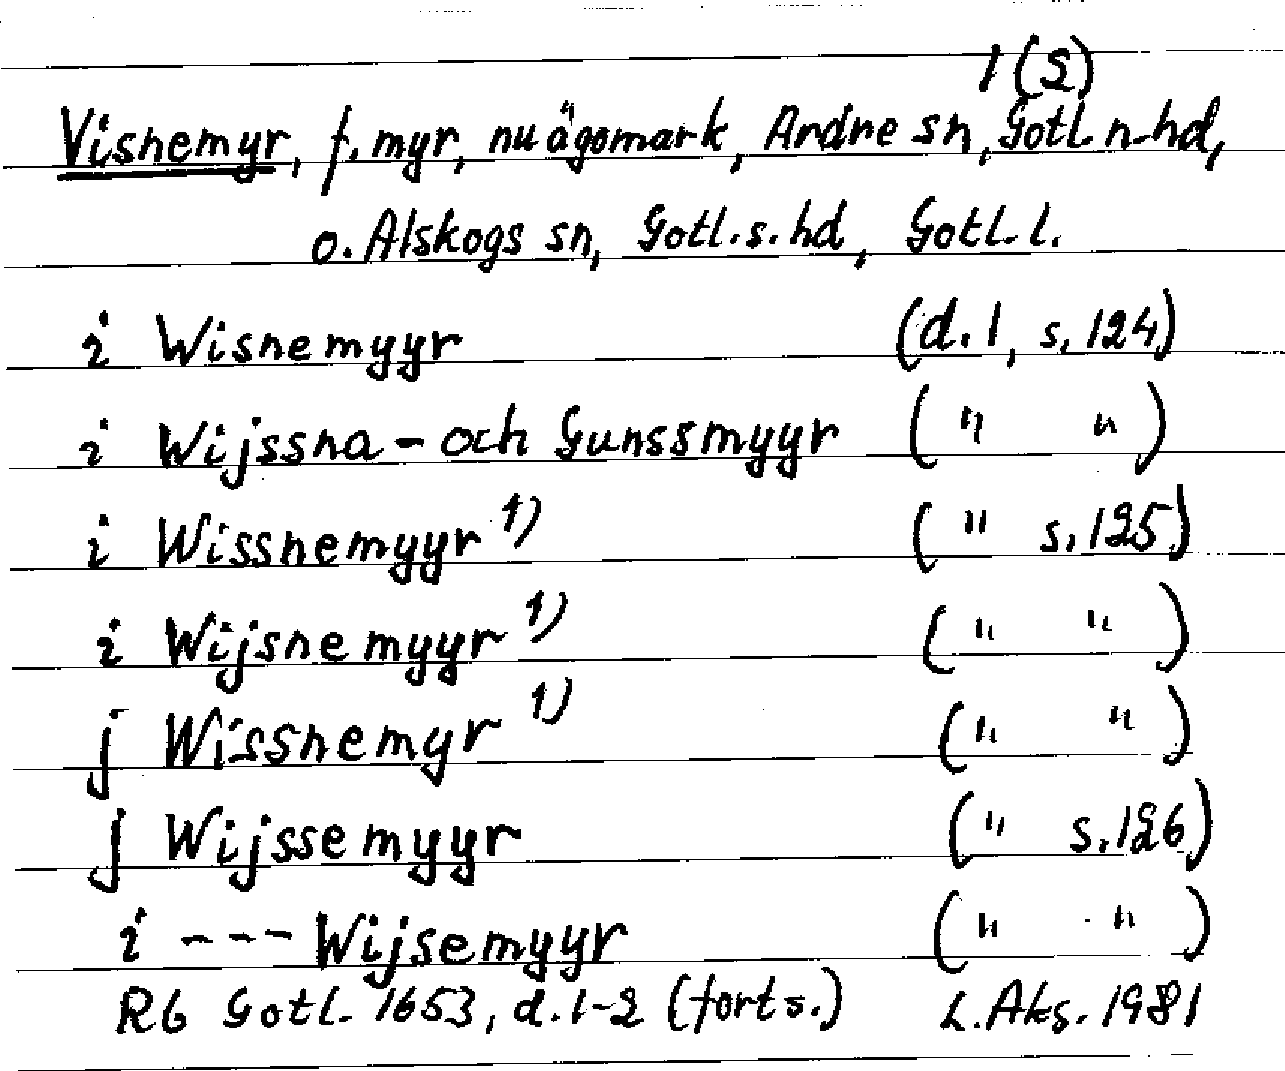 1(S)
Visnemyr, f. myr, nu ägomark, Ardre sn, Gotl. n. hd,
o. Alskogs sn, Gotl. s. hd, Gotl. l.
i Wisnemyyr (d. 1, s. 124)
i Wijssna- och Gunssmyyr ( " " )
i Wissnemyyr 1) ( " s. 125)
i Wijsnemyyr 1) ( " " )
j Wissnemyr 1) ( " " )
j Wijssemyyr ( " s. 126)
i --- Wijsemyyr ( " " )
Rb Gotl. 1653, d. 1-2 (forts.) L. Aks. 1981